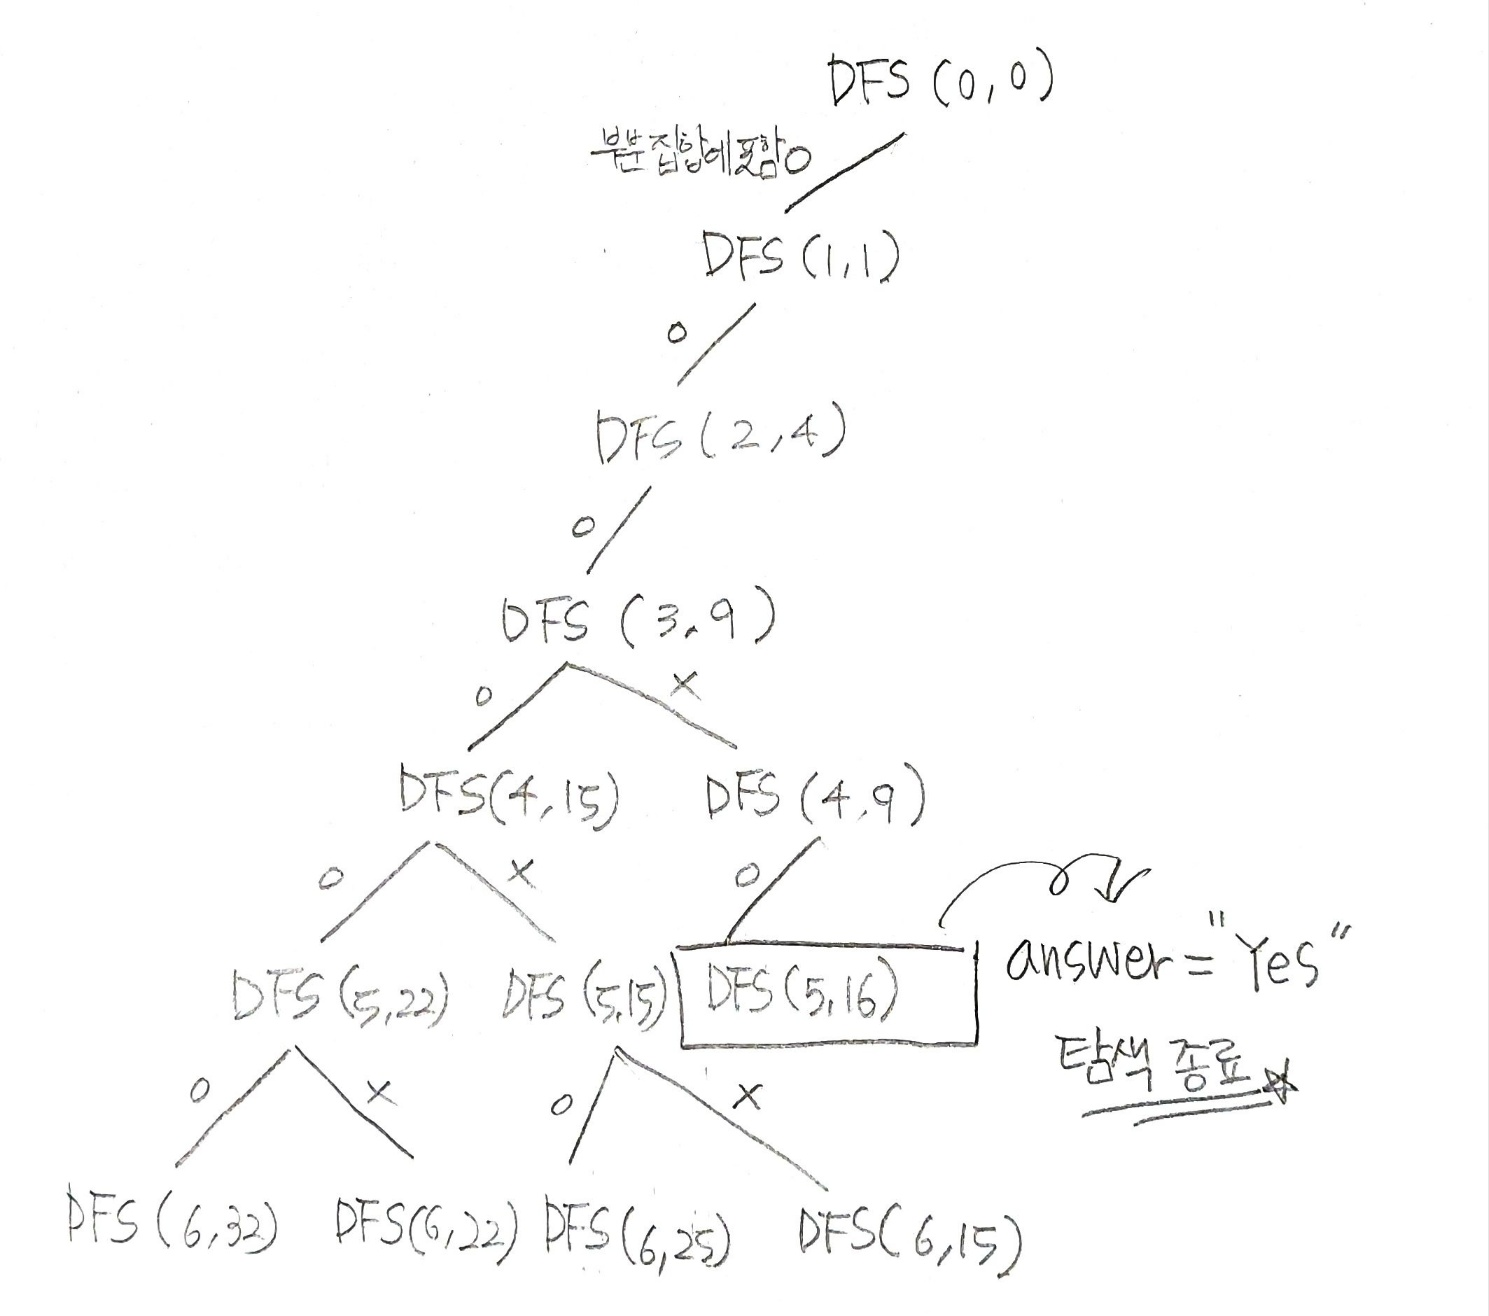 DFS (0,0)
부분집합에포함O
DFS (1,1)
O
DFS (2,4)
O
DFS (3,9)
O X
DFS(4,15) DFS (4,9)
O X O
DFS (5,22) DFS (5,15) DFS(5,16) answer = "Yes"
탐색 종료☆
O X O X
DFS (6,32) DFS(6,22) DFS(6,25) DFS(6,15)